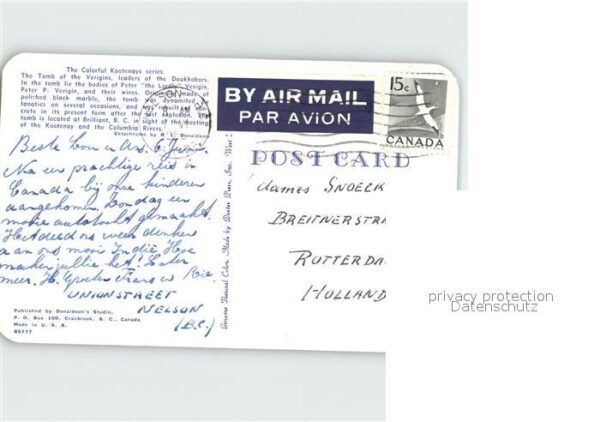 The Colorful Kootenays series.
The Tomb of the Verigins, leaders of the Doukhobors.
In the tomb lie the bodies of Peter "the Lordly" Verigin,
Peter P. Verigin, and their wives. Originally made of
polished black marble, the tomb was dynamited by
fanatics on several occasions, and was built in
crete in its present form after the last explosion. The
tomb is located at Brilliant, B. C. in sight of the meeting
of the Kootenay and the Columbia Rivers.
Ektachrome by Donaldson
BY AIR MAIL
PAR AVION
15c
CANADA
POST CARD
Beste Con en An. 6 Juni
Na een prachtige reis in
Canada bij onze kinderen
aangekomen. Zondag een
mooie autotocht gemaakt.
Het deed ons weer denken
aan ons mooi Indië. Hoe
maken jullie het? Later
meer. H. Groeten Frans en Rie
UNIONSTREET
NELSON
(B.C.)
James SNOECK
BREITNERSTRA
ROTTERDA
HOLLAND
Published by Donaldson's Studio,
P. O. Box 100, Cranbrook, B. C., Canada
Made in U. S. A.
85777
Natural Color. Made by Dexter Press, Inc. West
privacy protection
Datenschutz